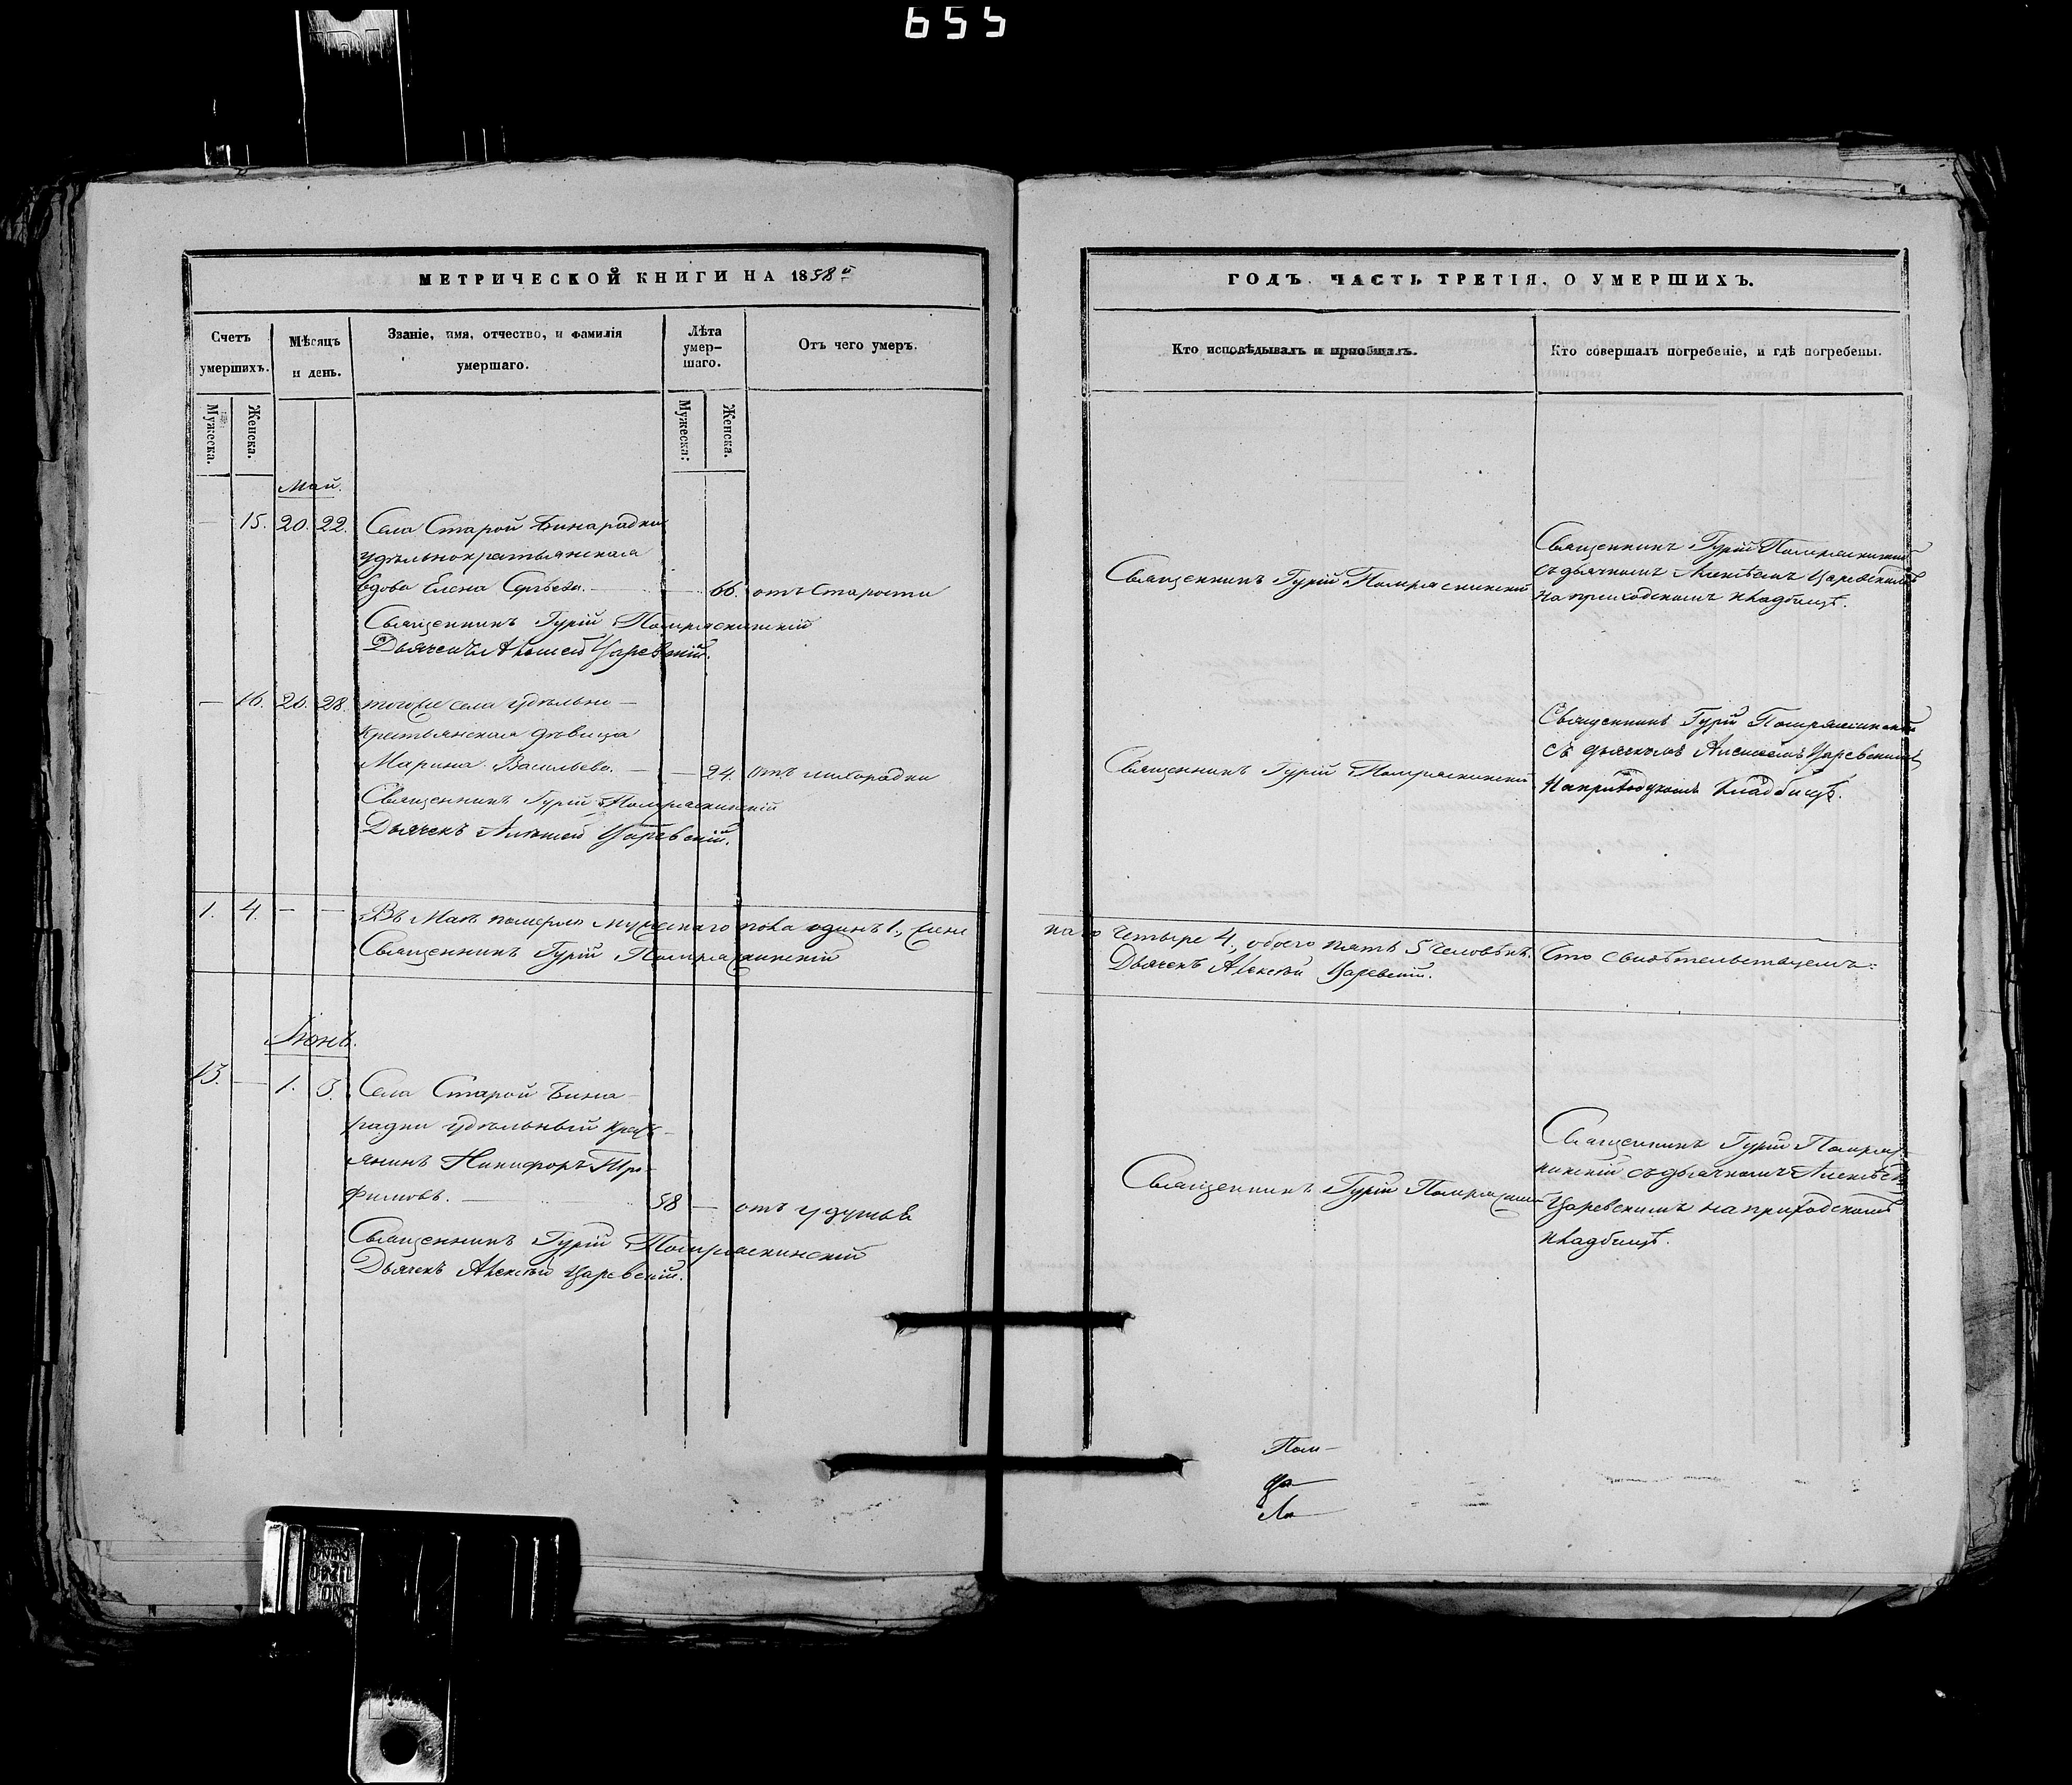 655
МЕТРИЧЕСКОЙ КНИГИ НА 1858й
Счетъ умершихъ.
Мѣсяцъ и день.
Званіе, имя, отчество, и фамилія умершаго.
Лѣта умер-шаго.
Отъ чего умеръ.
Мужеска.
Женска.
Мужеска:
Женска.
Май.
— 15. 20. 22. Села Старой Бинарадки
удѣльнокрестьянская
вдова Елена Сергѣева. — 66. отъ Старости
Священникъ Гурій Помряскинскій
Дьячекъ Алексей Царевскій.
— 16. 26. 28. тогоже села удѣльно —
Крестьянская дѣвица
Марина Васильева. — — 24. Отъ лихорадки
Священникъ Гурій Помряскинскій
Дьячекъ Алексей Царевскій.
1. 4. — — Въ Маѣ померло мужескаго пола одинъ 1., жен
Священникъ Гурій Помряскинскій
Іюнь.
13. — 1. 3. Села Старой Бина —
радки удѣльный крест —
янинъ Никифоръ Тро-
фимовъ. — 58 — отъ удушья
Священникъ Гурій Помряскинскій
Дьячекъ Алексѣй Царевскій.
ГОДЪ. ЧАСТЬ ТРЕТІЯ. О УМЕРШИХЪ.
Кто исповѣдывалъ и пріобщалъ.
Кто совершалъ погребеніе, и гдѣ погребены.
Священникъ Гурій Помряскинскій
Священникъ Гурій Помряскинскій
съ дьячкомъ Алексѣемъ Царевскимъ
На приходскомъ кладбищѣ.
Священникъ Гурій Помряскинскій
Священникъ Гурій Помряскинскій
съ дьячкомъ Алексеемъ Царевскимъ
На приходскомъ Кладбищѣ.
наго четыре 4., обоего пять 5 человѣкъ. Что свидѣтельствуемъ:
Дьячекъ Алексѣй Царевскій.
Священникъ Гурій Помряскин
Священникъ Гурій Помряс
кинскій съ дьячкомъ Алексѣемъ
Царевскимъ на приходскомъ
кладбищѣ.
Пом —
Ца —